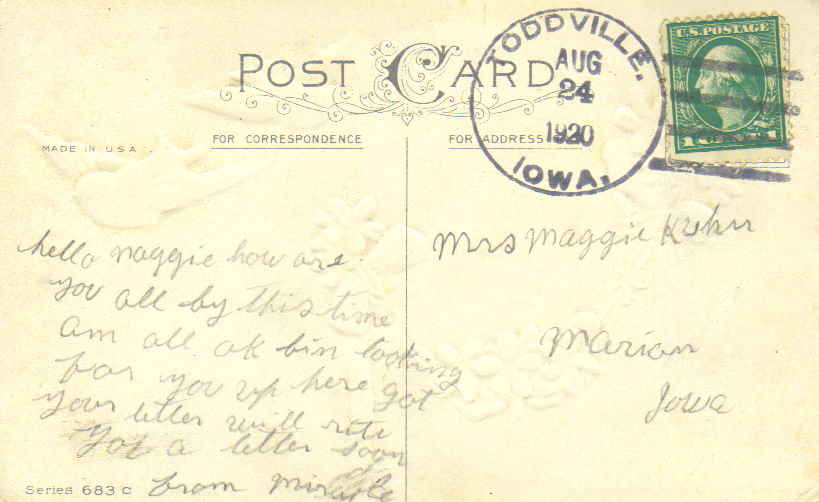 POST CARD
FOR CORRESPONDENCE
FOR ADDRESS
MADE IN U.S.A.
TODDVILLE.
AUG
24
1920
IOWA.
U.S. POSTAGE
1 CENT 1
hello maggie how are
you all by this time
am all ok bin looking
for you up here got
your letter will rite
you a letter soon
from
Mrs Maggie
Marion
Iowa
Series 683 C